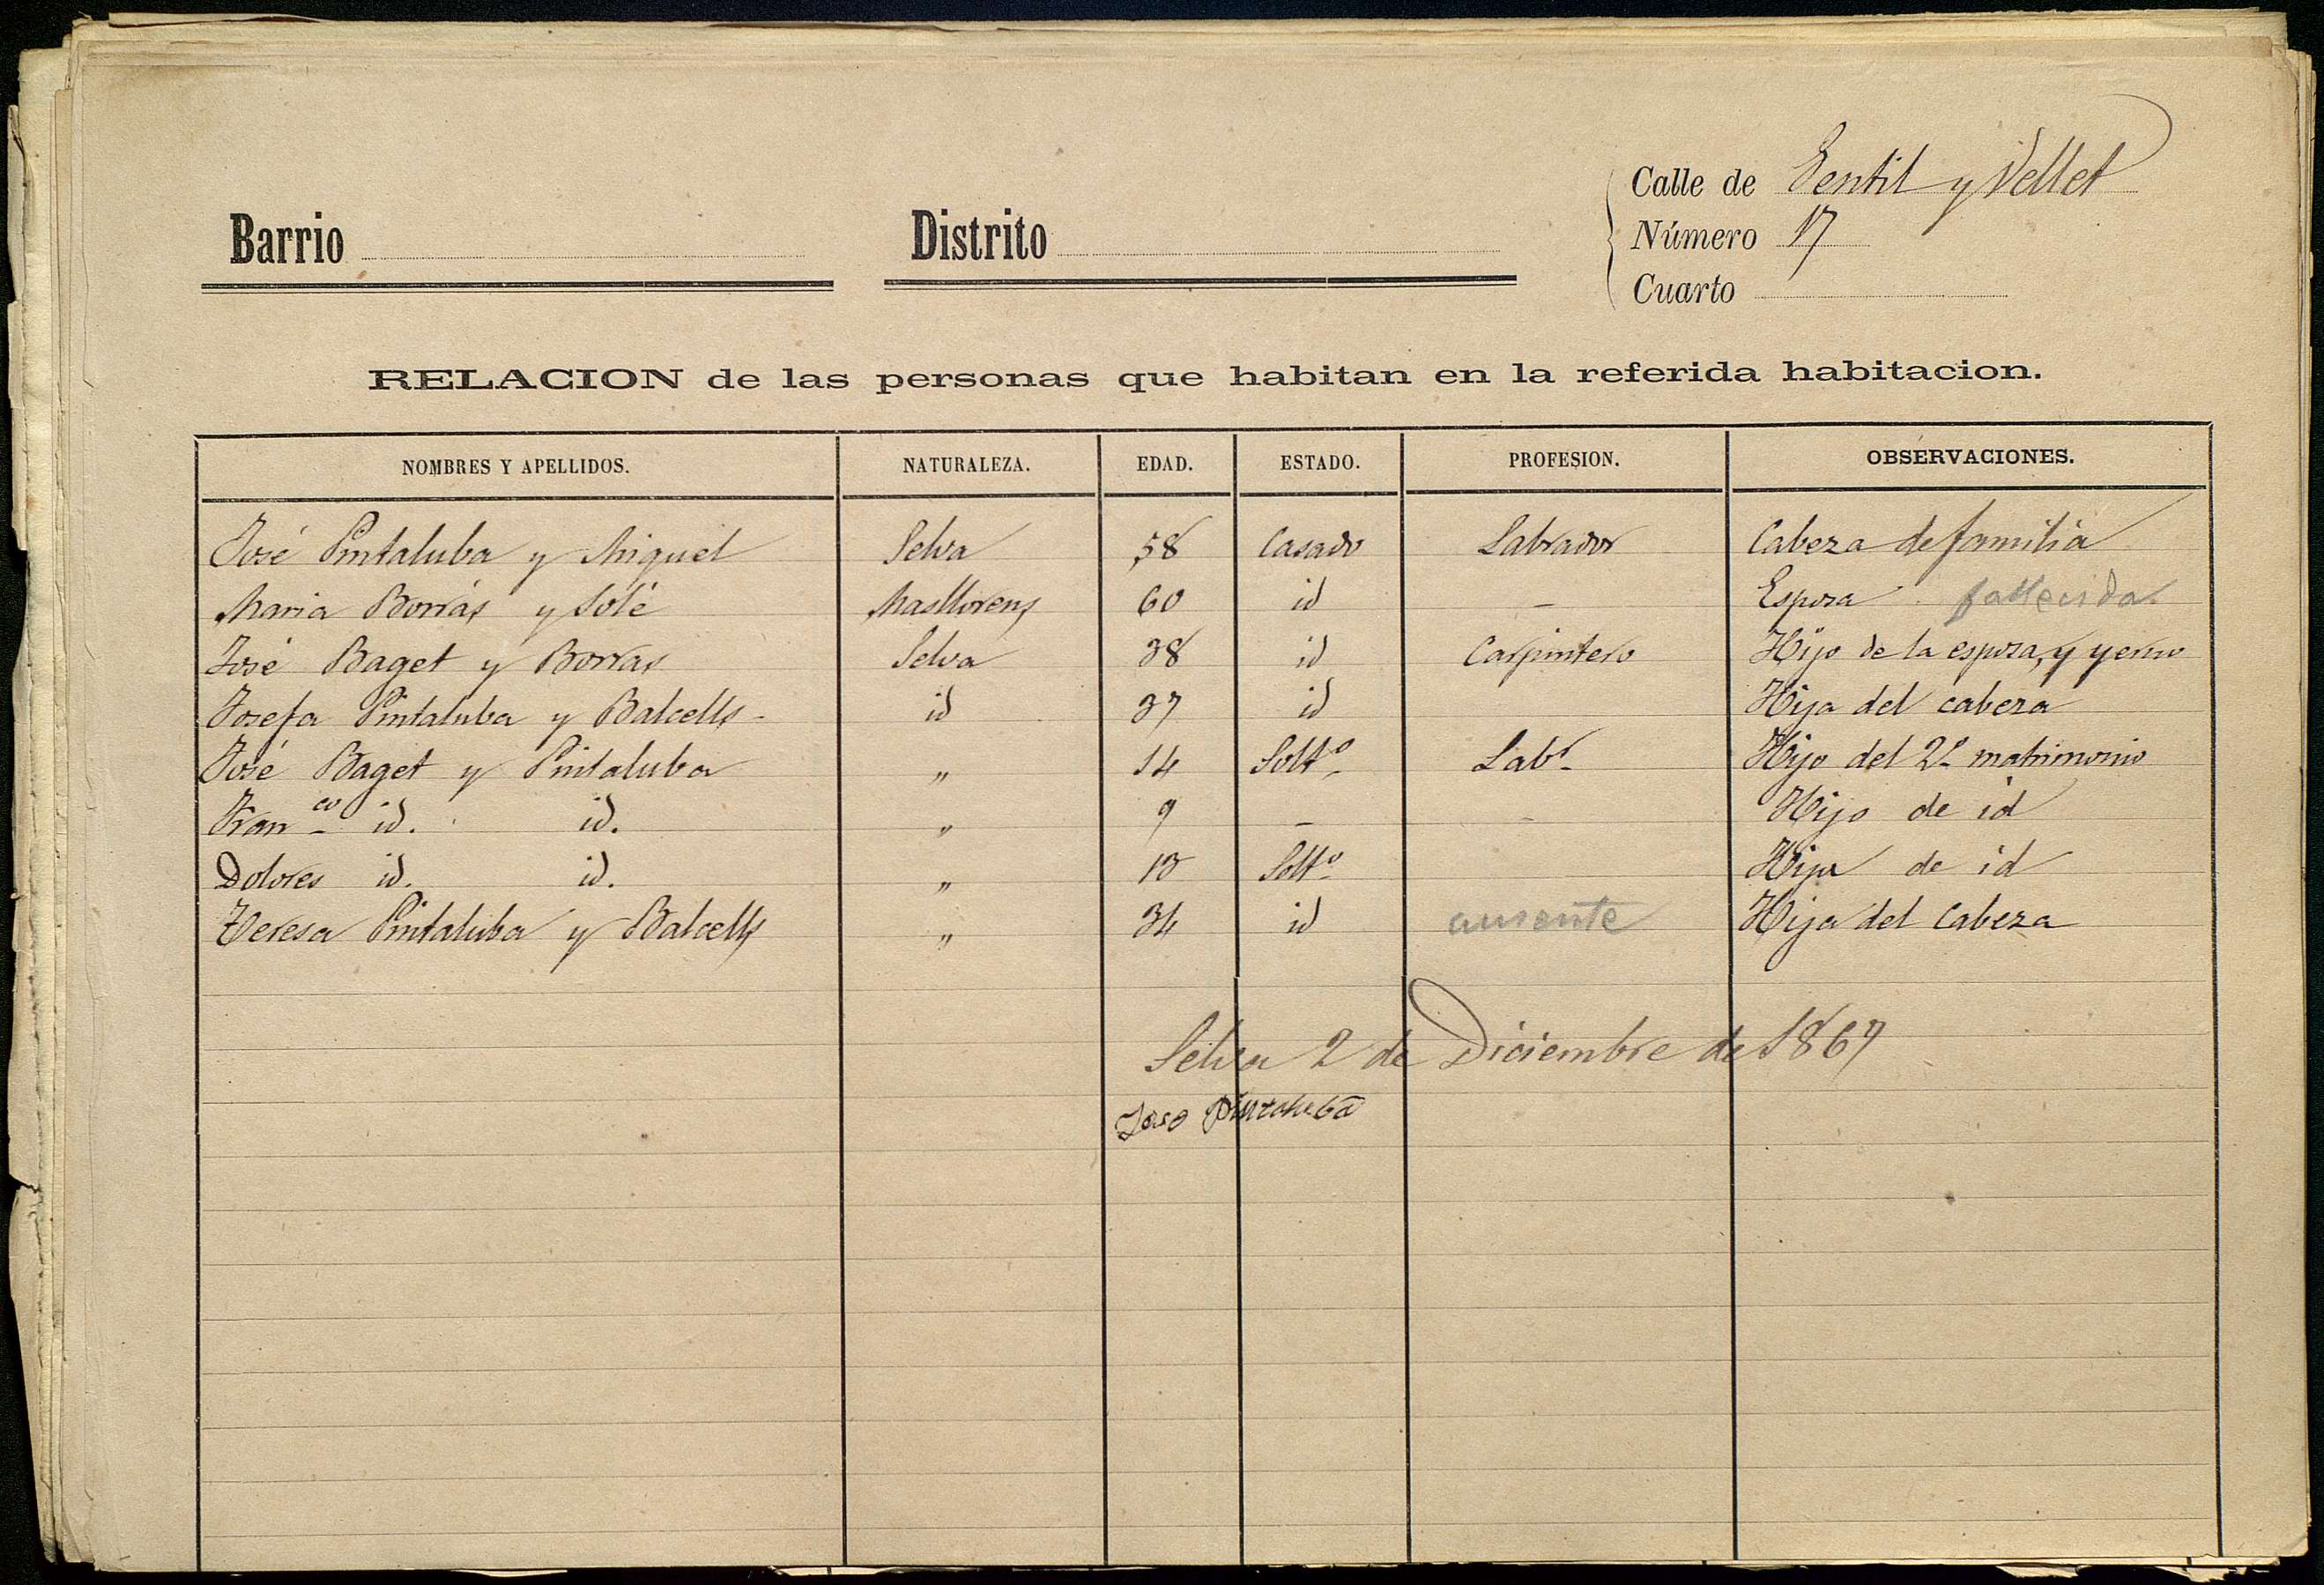 Calle de Gentil y Vellet
Barrio Distrito Número 17
Cuarto
RELACION de las personas que habitan en la referida habitacion.
NOMBRES Y APELLIDOS. NATURALEZA. EDAD. ESTADO. PROFESION. OBSERVACIONES.
José Pintaluba y Miquel Selva 58 Casado Labrador Cabeza de familia
Maria Borrás y Solé Masllorens 60 id — Esposa fallecida
José Baget y Borras Selva 38 id Carpintero Hijo de la esposa, y yerno
Josefa Pintaluba y Balcells - id 37 id Hija del cabeza
José Baget y Pintaluba " 14 Solto Labr Hijo del 2º matrimonio
Franco id. id. " 9 — - Hijo de id
Dolores id. id. " 13 Solto Hija de id
Teresa Pintaluba y Balcells " 34 id ausente Hija del Cabeza
Selva 2 de Diciembre de 1867
Jose Pintaluba